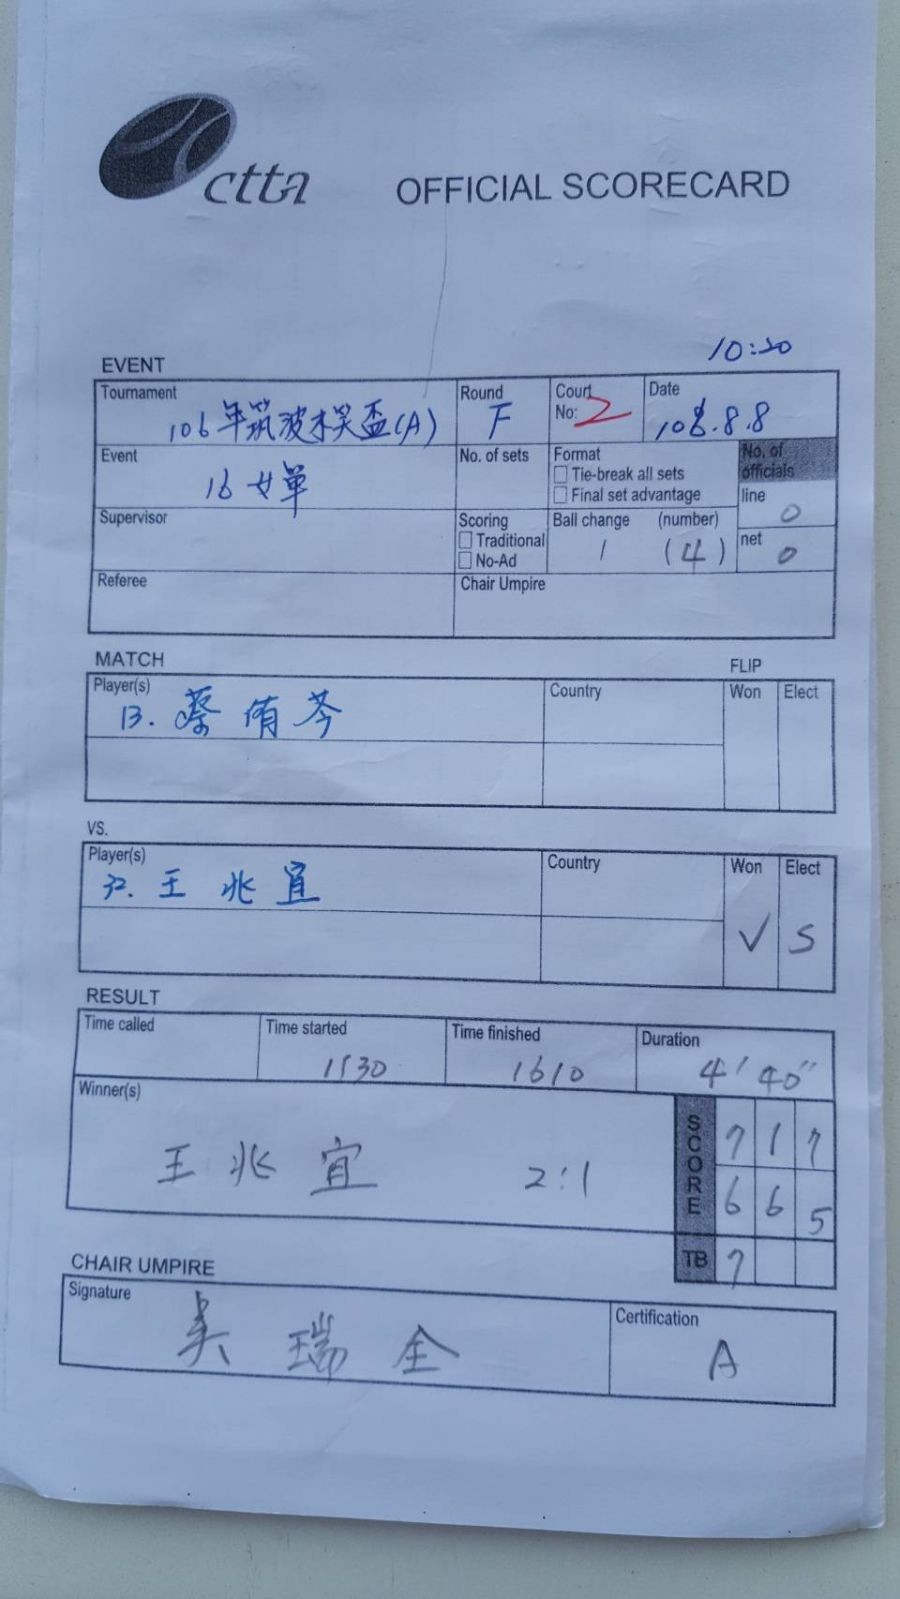 ctta
OFFICIAL SCORECARD
10:20
EVENT
Tournament
106年筑波木笑盃(A)
Round
F
Court
No: 2
Date
108.8.8
Event
16女單
No. of sets
Format
Tie-break all sets
Final set advantage
No. of
officials
line
0
Supervisor
Scoring
Traditional
No-Ad
Ball change (number)
1 (4)
net
0
Referee
Chair Umpire
MATCH
FLIP
Player(s)
13. 蔡侑芩
Country
Won
Elect
VS.
Player(s)
32. 王兆宜
Country
Won
Elect
✓ S
RESULT
Time called
Time started
1530
Time finished
1610
Duration
4' 40"
Winner(s)
王兆宜 2:1
SCORE
7 1 7
6 6 5
TB 7
CHAIR UMPIRE
Signature
瑞全
Certification
A